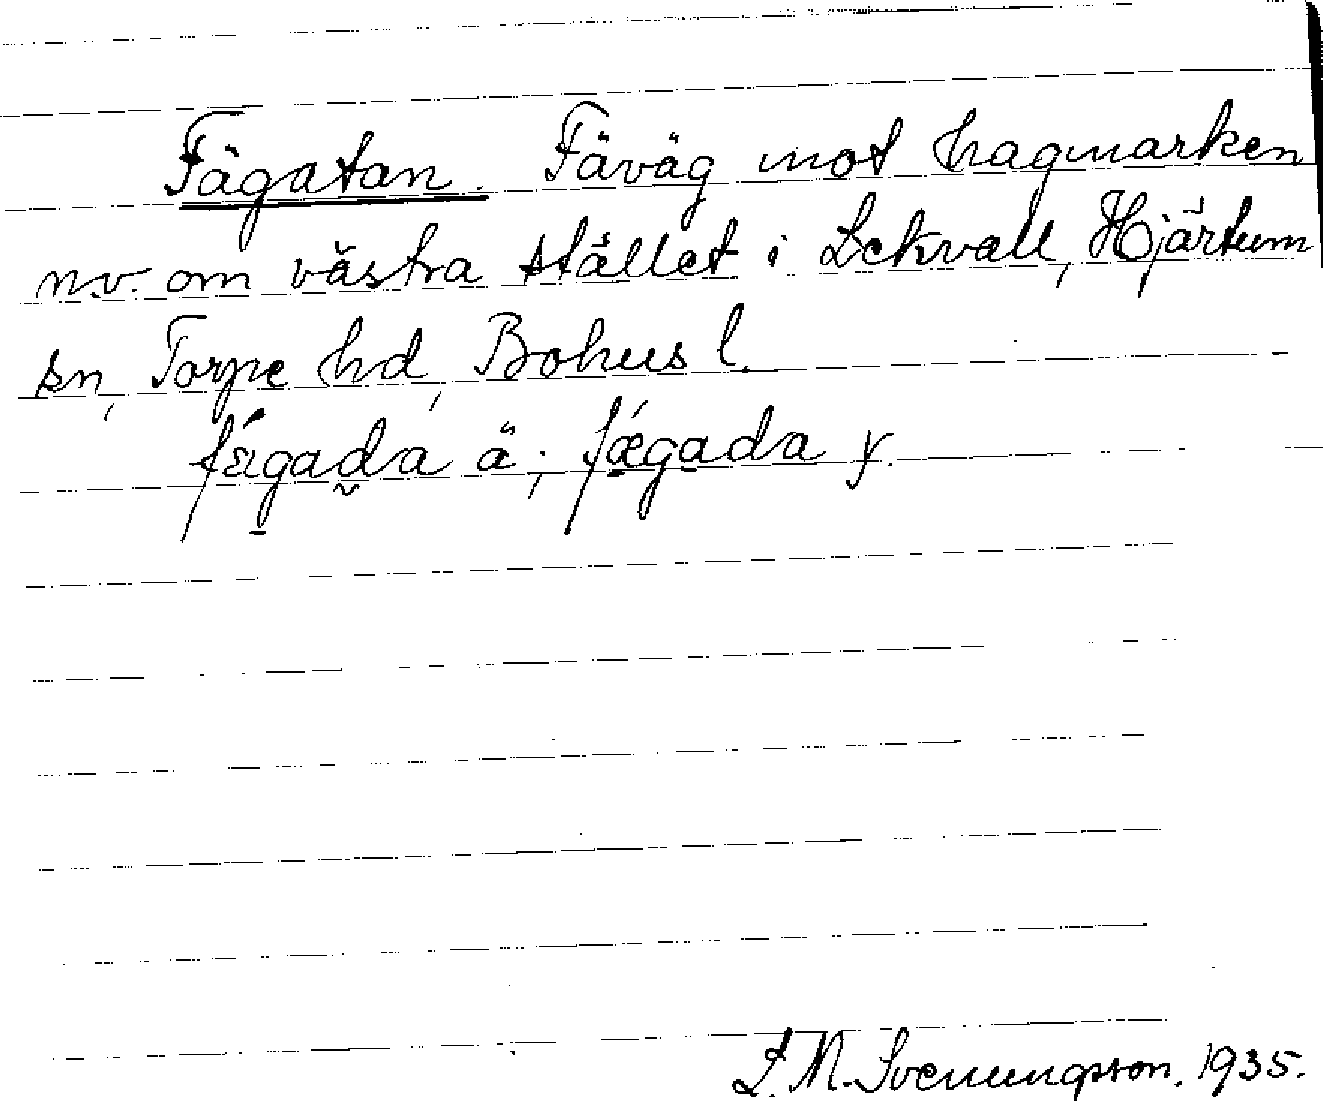 Fägatan. Fäväg mot hagmarken
n.v. om västra stället i Lekvall, Hjärtum
sn, Torpe hd, Bohusl.
fǽgada ä.; fǽgada y.
S. M. Svenungsson. 1935.